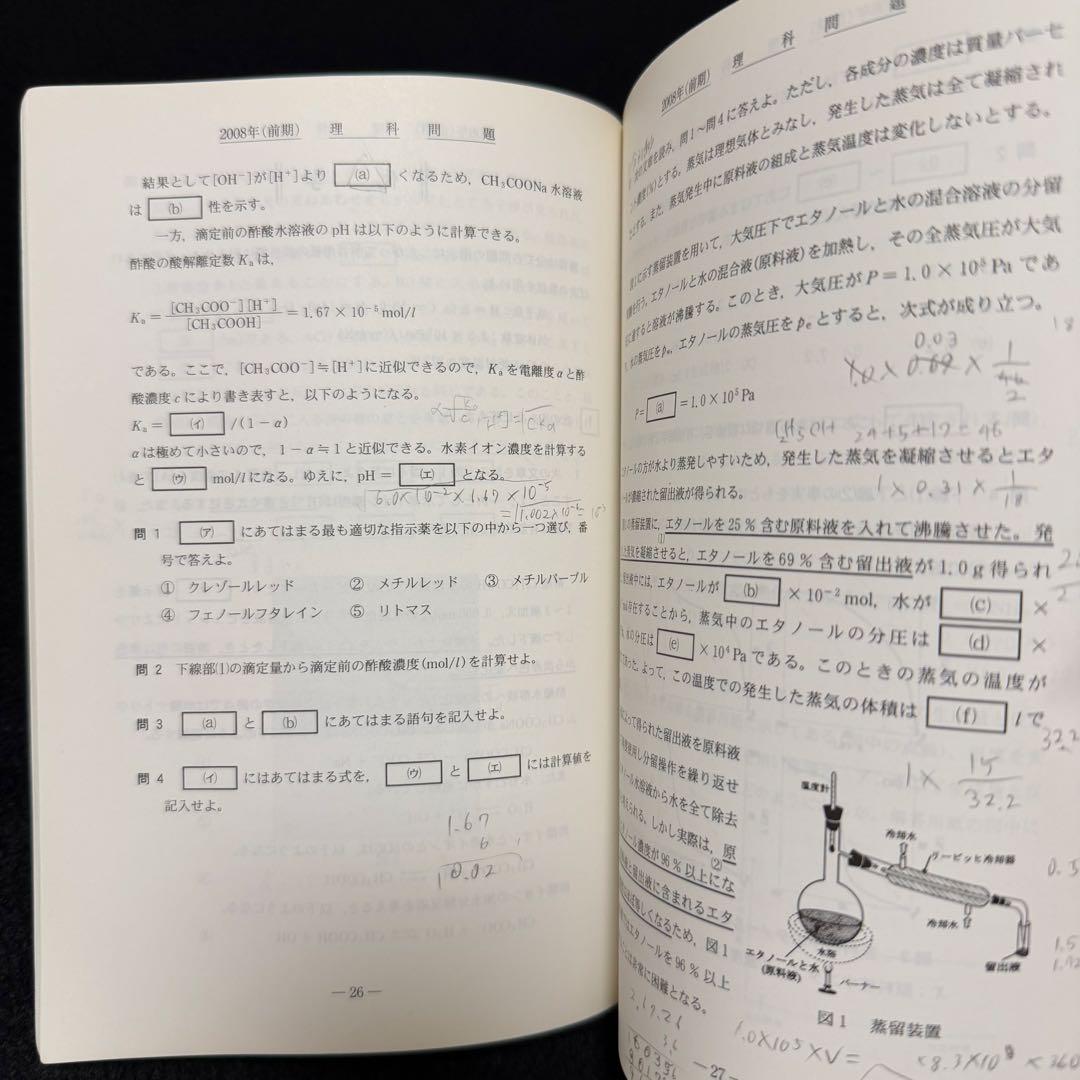 2008年(前期) 理 科 問 題
結果として[OH⁻]が[H⁺]より (a) くなるため，CH₃COONa 水溶液
は (b) 性を示す。
一方，滴定前の酢酸水溶液の pH は以下のように計算できる。
酢酸の酸解離定数 Kₐ は，
Kₐ = [CH₃COO⁻][H⁺] / [CH₃COOH] = 1.67 × 10⁻⁵ mol/l
である。ここで，[CH₃COO⁻]≒[H⁺]に近似できるので，Kₐ を電離度 α と酢
酸濃度 c により書き表すと，以下のようになる。
Kₐ = (イ) /(1 − α)
α は極めて小さいので，1 − α ≒ 1 と近似できる。水素イオン濃度を計算する
と (ウ) mol/l になる。ゆえに，pH = (エ) となる。
6.0 × 10⁻² × 1.67 × 10⁻⁵
問 1 (ア) にあてはまる最も適切な指示薬を以下の中から一つ選び，番
号で答えよ。
① クレゾールレッド ② メチルレッド ③ メチルパープル
④ フェノールフタレイン ⑤ リトマス
問 2 下線部(1)の滴定量から滴定前の酢酸濃度(mol/l)を計算せよ。
問 3 (a) と (b) にあてはまる語句を記入せよ。
問 4 (イ) にはあてはまる式を， (ウ) と (エ) には計算値を
記入せよ。
1.67
6
10.02
— 26 —
2008年(前期) 理 科 問 題
の文章を読み，問1〜問4に答えよ。ただし，各成分の濃度は質量パーセ
濃度(%)とする。蒸気は理想気体とみなし，発生した蒸気は全て凝縮され
とする。また，蒸気発生中に原料液の組成と蒸気温度は変化しないとする。
に示す蒸留装置を用いて，大気圧下でエタノールと水の混合溶液の分留
を行う。エタノールと水の混合液(原料液)を加熱し，その全蒸気圧が大気
に達すると溶液が沸騰する。このとき，大気圧が P = 1.0 × 10⁵ Pa であ
水の蒸気圧を，エタノールの蒸気圧を pₑ とすると，次式が成り立つ。
0.03
P = (a) = 1.0 × 10⁵ Pa
C₂H₅OH 24+5+17=46
ノールの方が水より蒸発しやすいため，発生した蒸気を凝縮させるとエタ
ールが濃縮された留出液が得られる。
1 × 0.31 × 1/18
の蒸留装置に，エタノールを 25 % 含む原料液を入れて沸騰させた。発
(1)
た蒸気を凝縮させると，エタノールを 69 % 含む留出液が 1.0 g 得られ
液中には，エタノールが (b) × 10⁻² mol，水が (c) ×
mol 存在することから，蒸気中のエタノールの分圧は (d) ×
水の分圧は (e) × 10⁴ Pa である。このときの蒸気の温度が
であった。よって，この温度での発生した蒸気の体積は (f) l で
32.2
1 × 15/32.2
によって得られた留出液を原料液
使用し分留操作を繰り返せ
ノール水溶液から水を全て除去
えられる。しかし実際は，原
(2)
ノール濃度が 96 % 以上にな
と留出液に含まれるエタ
ぼ等しくなるため，図 1
ではエタノールを 96 % 以上
ことは非常に困難となる。
温度計
冷却水
リービッヒ冷却器
冷却水
水浴
エタノールと水
(原料液)
バーナー
留出液
図 1 蒸留装置
1.0×10⁵×V =
— 27 —